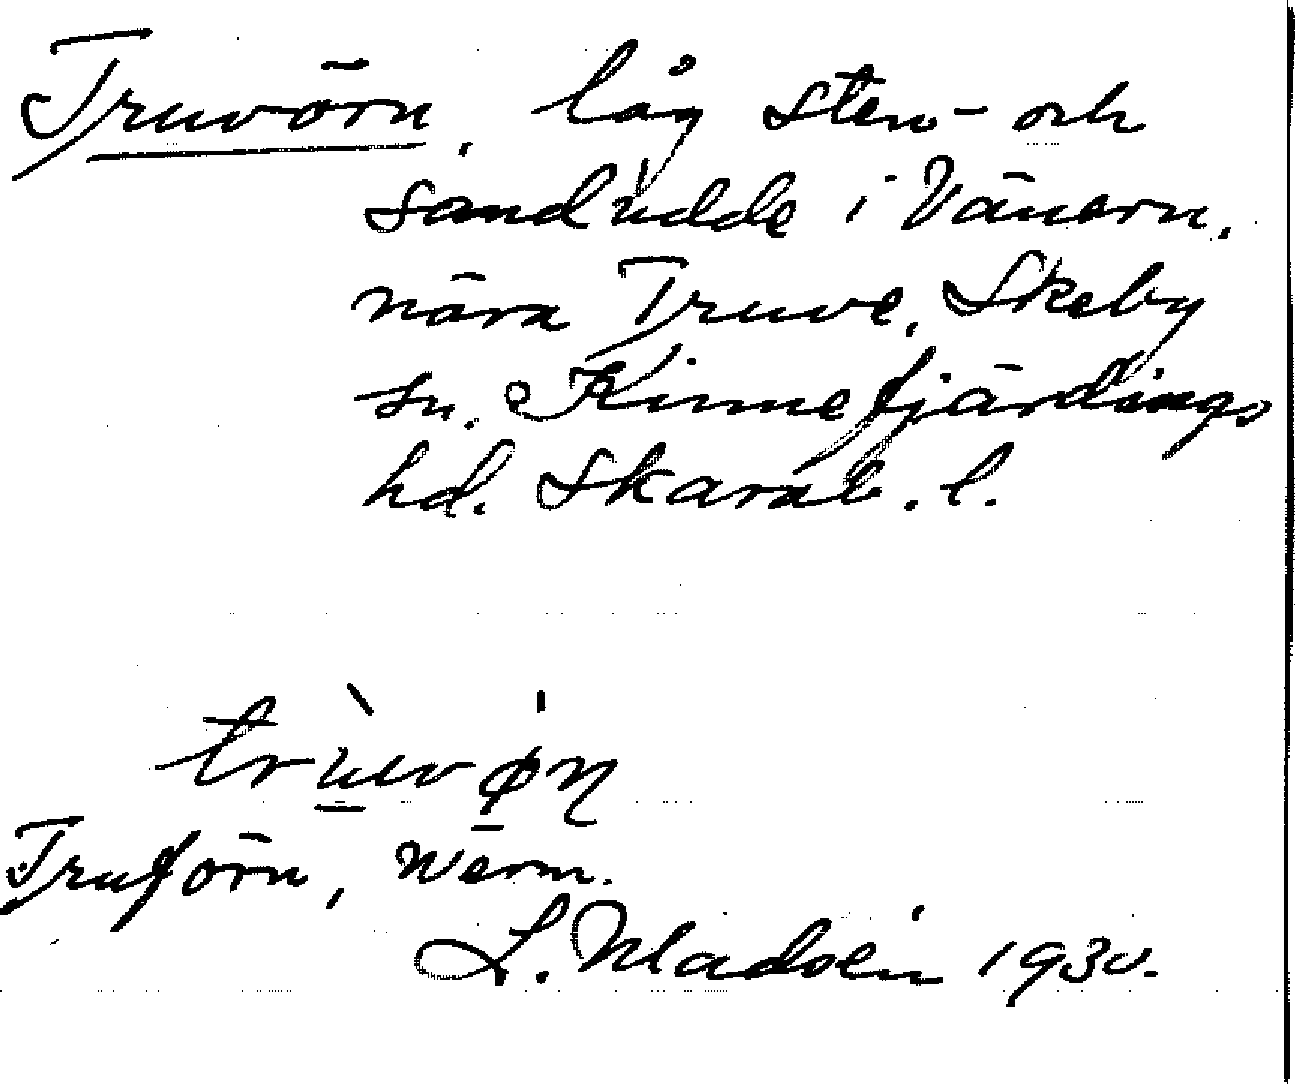 Truvörn, låg sten- och
sandudde i Vänern,
nära Truve, Skeby
sn, Kinnefjärdings
hd. Skarab. l.
Truförn, Werm.
L. 1930.